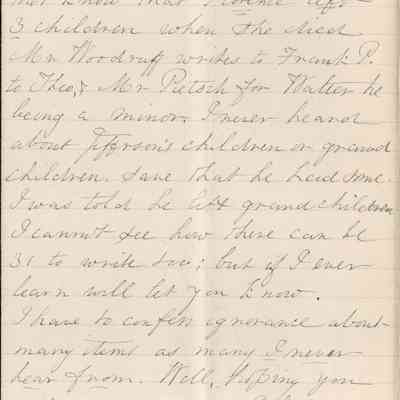 not know that Florence left
3 children when she died
Mr Woodruff writes to Frank P.
to Theo, & Mr Pietsch for Walter he
being a minor. I never heard
about Jefferson's children or grand
children. Save that he had some.
I was told he left grandchildren
I cannot see how there can be
31 to write too; but if I ever
learn will let you know.
I have to confess ignorance about
many items as many I never
hear from. Well, hoping you